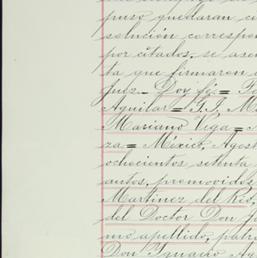 puso quedaran co
solución correspon
por citados, se asen
ta que firmaron
Juez. Doy fé. = 
Aguilar = G. G. M
Mariano Vega =
za = México, Agost
ochocientos setenta
autos, promovidos
Martinez del Rio,
del Doctor Don J
mo apellido, patro
Don Ignacio Ag